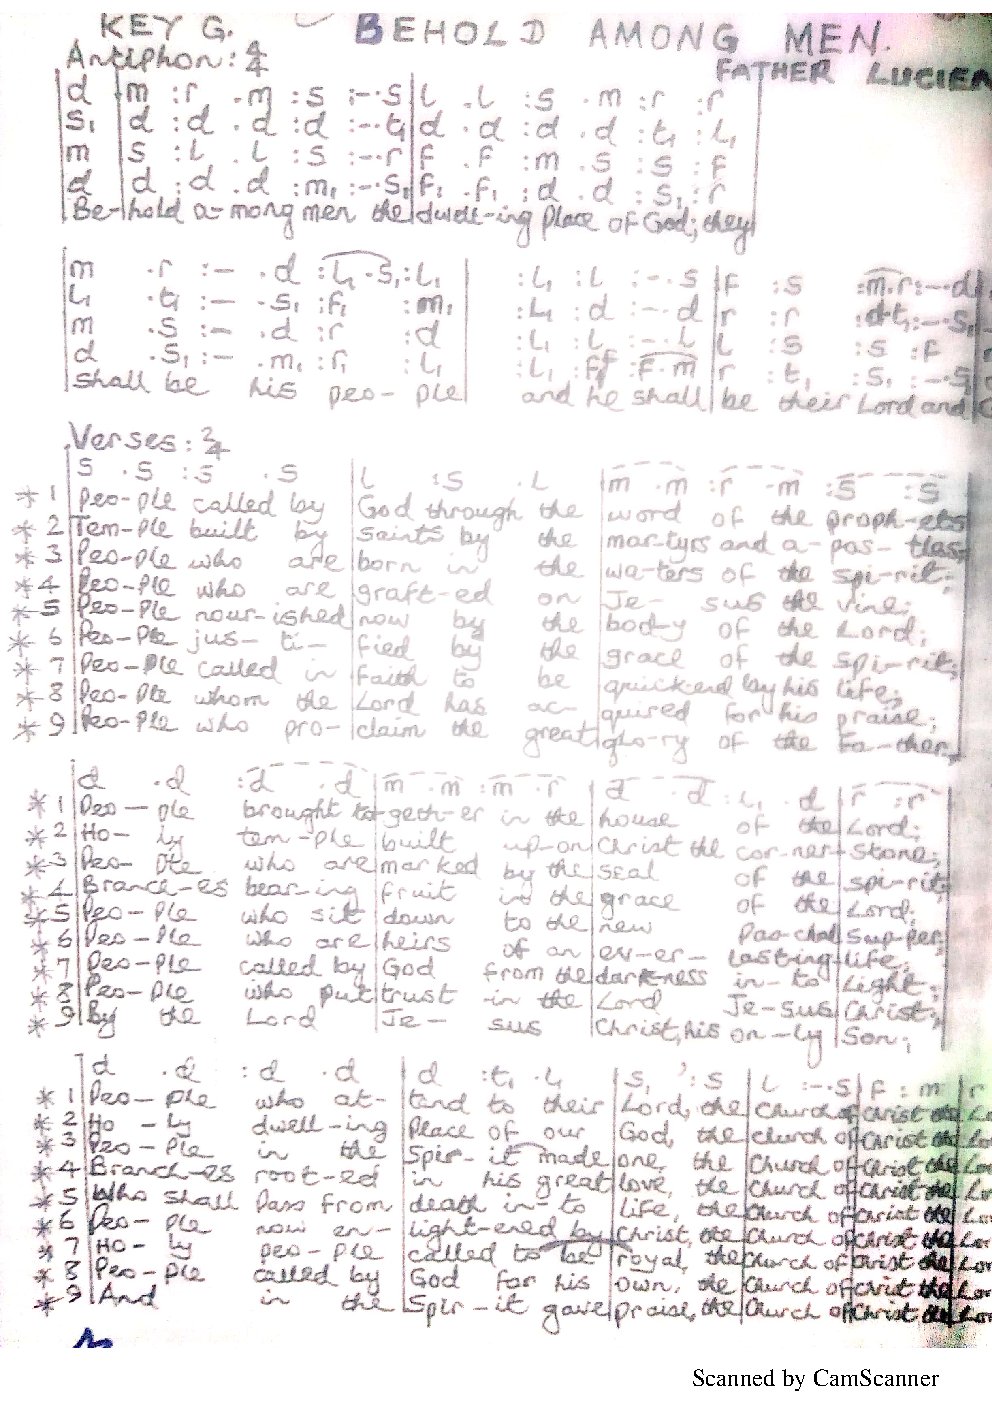 KEY G. BEHOLD AMONG MEN.
Antiphon: 4/4 FATHER LUCIEN
d | m : r . m : s : - . s | l . l : s . m : r : r
s₁ | d : d . d : d : - . t₁ | d . d : d . d : t₁ : l₁
m | s : l . l : s : - . r | f . f : m . s : s : f
d | d : d . d : m₁ : - . s₁ | f₁ . f₁ : d . d : s₁ : r
Be-hold a-mong men the dwell-ing place of God; they
m . r : - . d : l₁ . s₁ : l₁ | : l₁ : l : - . s | f : s : m . r : - . d
l₁ . t₁ : - . s₁ : f₁ : m₁ | : l₁ : d : - . d | r : r : d . t₁ : - . s₁
m . s : - . d : r : d | : l₁ : l : - . l | l : s : s : f
d . s₁ : - . m₁ : r₁ : l₁ | : l₁ : f : f . m | r : t₁ : s₁ : - . s₁
shall be his peo-ple and he shall be their Lord and
Verses: 2/4
s . s : s . s | l : s . l | m . m : r . m : s : s
* 1 Peo-ple called by God through the word of the proph-ets
* 2 Tem-ple built by saints by the mar-tyrs and a-pos-tles;
* 3 Peo-ple who are born in the wa-ters of the spi-rit;
* 4 Peo-ple who are graft-ed on Je-sus the vine;
* 5 Peo-ple nour-ished now by the bod-y of the Lord;
* 6 Peo-ple jus-ti-fied by the grace of the spi-rit;
* 7 Peo-ple called in faith to be quickend by his life;
* 8 Peo-ple whom the Lord has ac-quired for his praise;
* 9 Peo-ple who pro-claim the great glo-ry of the Fa-ther,
d . d : d . d | m . m : m . r | d . d : l₁ . d | r : r
* 1 Peo-ple brought to-geth-er in the house of the Lord;
* 2 Ho-ly tem-ple built up-on Christ the cor-ner-stone;
* 3 Peo-ple who are marked by the seal of the spi-rit;
* 4 Branch-es bear-ing fruit in the grace of the Lord;
* 5 Peo-ple who sit down to the new Pas-chal Sup-per;
* 6 Peo-ple who are heirs of an ev-er-lasting life;
* 7 Peo-ple called by God from the dark-ness in-to light;
* 8 Peo-ple who put trust in the Lord Je-sus Christ;
* 9 By the Lord Je-sus Christ, his on-ly Son;
d . d : d . d | d : t₁ . l₁ | s₁ : s | l : - . s | f : m | r
* 1 Peo-ple who at-tend to their Lord, the Church of Christ the Lo
* 2 Ho-ly dwell-ing place of our God, the church of Christ the Lo
* 3 Peo-ple in the Spir-it made one, the Church of Christ the Lo
* 4 Branch-es root-ed in his great love, the Church of Christ the Lo
* 5 Who shall pass from death in-to life, the Church of Christ the Lo
* 6 Peo-ple now en-light-ened by Christ, the Church of Christ the Lo
* 7 Ho-ly peo-ple called to be royal, the Church of Christ the Lor
* 8 Peo-ple called by God for his own, the Church of Christ the Lor
* 9 And in the Spir-it gave praise, the Church of Christ the Lo
Scanned by CamScanner